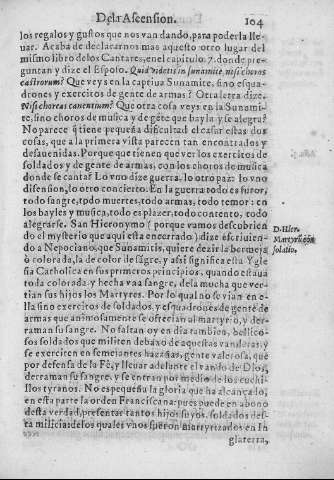 De la Ascension. 104
los regalos y gustos que nos van dando, para poderla lle
uar. Acaba de declararnos mas aquesto otro lugar del
mismo libro de los Cantares, en el capitulo 7. donde pre
guntan y dize el Esposo. Quid videtis in sunamite, nisi choros
castrorum? Que veys en la captiua Sunamite, sino esqua-
drones y exercitos de gente de armas? Otra letra dize.
Nisi choreas canentium? Que otra cosa veys en la Sunami-
te, sino choros de musica y de gẽte que bayla y se alegra?
No parece q̃ tiene pequeña dificultad el casar estas dos
cosas, que a la primera vista parecen tan encontradas y
desauenidas. Porque que tienen que ver los exercitos de
soldados y de gente de armas, con los choros de musica
donde se canta? Lo vno dize guerra, lo otro paz: lo vno
disension, lo otro concierto. En la guerra todo es furor,
todo sangre, todo muertes, todo armas, todo temor: en
los bayles y musica, todo es plazer, todo contento, todo
alegrarse. San Hieronymo (porque vamos descubrien
do el mysterio que aqui esta encerrado) dize escriuien-
a Nepociano, que Sunamitis, quiere dezir la bermeja
ò colorada, la de color de sãgre, y asi significa esta Ygle
sia Catholica en sus primeros principios, quando estaua
toda colorada y hecha vna sangre, de la mucha que ver-
tian sus hijos los Martyres. Por lo qual no se vian en e-
lla sino exercitos de soldados, y esquadrones de gente de
armas que animosamente se ofrecian al martyrio, y der-
raman su sangre. No faltan oy en dia tambien, bellico-
sos soldados que militen debaxo de aquestas vanderas, y
se exerciten en semejantes hazañas, gente valerosa, que
por defensa de la Fê, y lleuar adelante el vando de Dios,
derraman su sangre, y se entran por medio de los cuchi-
llos tyranos. No es pequeña la gloria que ha alcançado,
en esta parte la orden Franciscana: pues puede en abono
desta verdad, presentar tantos hijos suyos, soldados des-
ta milicia, de los quales vnos fueron martyrizados en In
glaterra,
D. Hier.